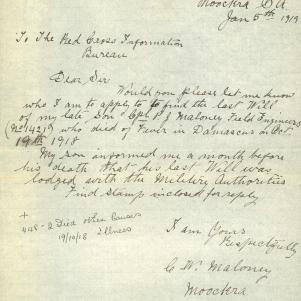 Moockra S A
Jan 5th 1919
To The Red Cross Information
Bureau
Dear Sir
Would you please let me know
who I am to apply to to find the last Will
of my late Son Cpl P J Maloney Field Engineers
(No 1421) who died of Fever in Damascus on Oct
19th 1918
My son informed me a month before
his death that his last Will was
lodged with the Military Authorities
Find Stamp inclosed for reply
+
448-2 Died other Causes
19/10/18 Illness
I am Yours
Respectfully
C W Maloney
Moockra